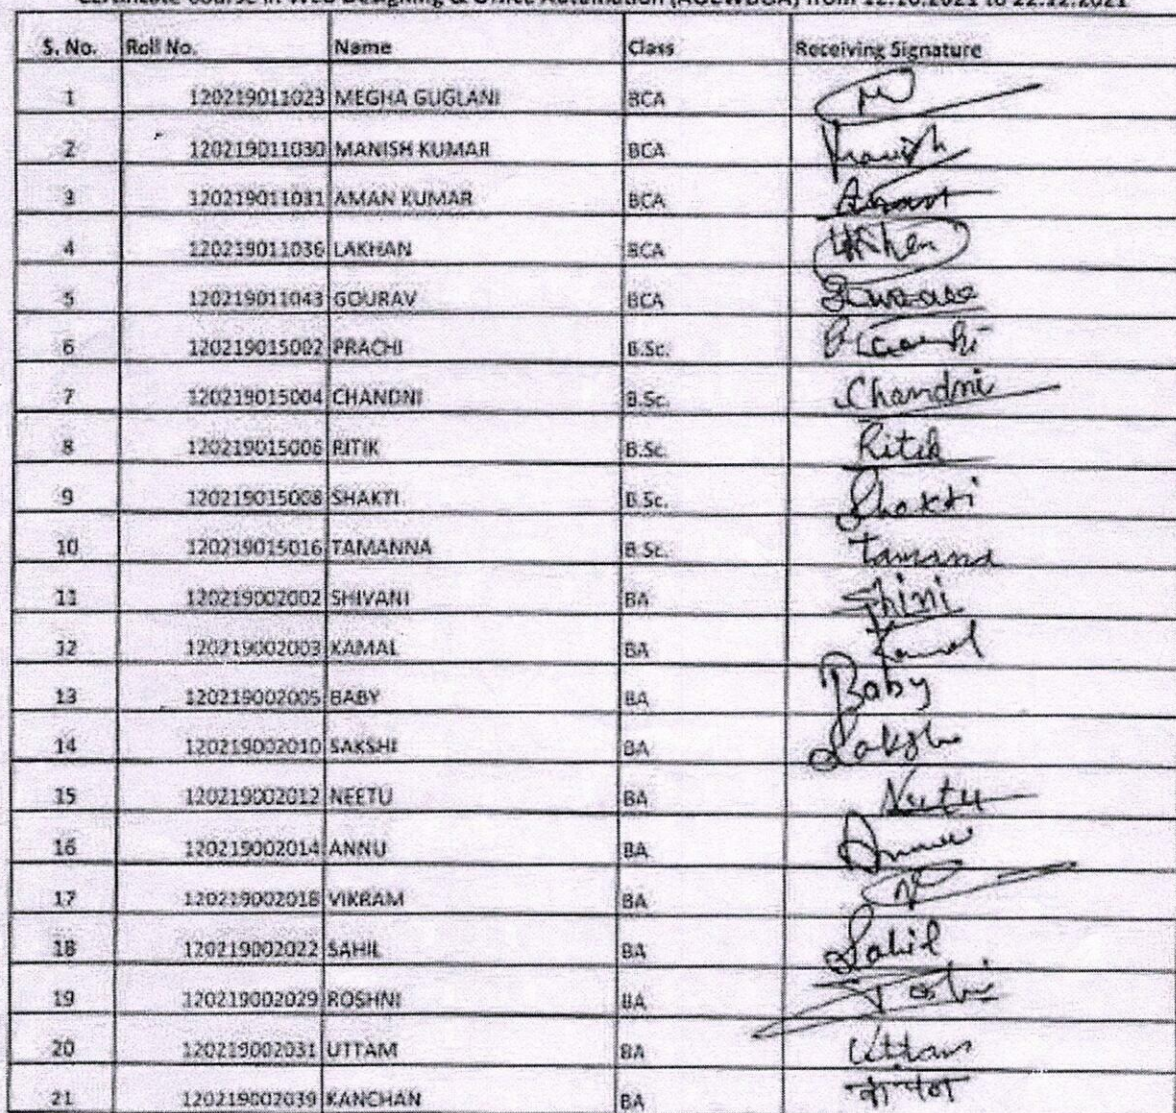 Certificate Course in Web Designing & Office Automation (AOCWDOA) from 12.10.2021 to 22.12.2021
S. No. Roll No. Name Class Receiving Signature
1 120219011023 MEGHA GUGLANI BCA
2 120219011030 MANISH KUMAR BCA Manish
3 120219011031 AMAN KUMAR BCA
4 120219011036 LAKHAN BCA
5 120219011043 GOURAV BCA
6 120219015002 PRACHI B.Sc.
7 120219015004 CHANDNI B.Sc. Chandni
8 120219015006 RITIK B.Sc. Ritik
9 120219015008 SHAKTI B.Sc. Shakti
10 120219015016 TAMANNA B.Sc. Tamana
11 120219002002 SHIVANI BA
12 120219002003 KAMAL BA Kamal
13 120219002005 BABY BA Baby
14 120219002010 SAKSHI BA Sakshi
15 120219002012 NEETU BA Neetu
16 120219002014 ANNU BA Annu
17 120219002018 VIKRAM BA
18 120219002022 SAHIL BA Sahil
19 120219002029 ROSHNI BA
20 120219002031 UTTAM BA Uttam
21 120219002039 KANCHAN BA